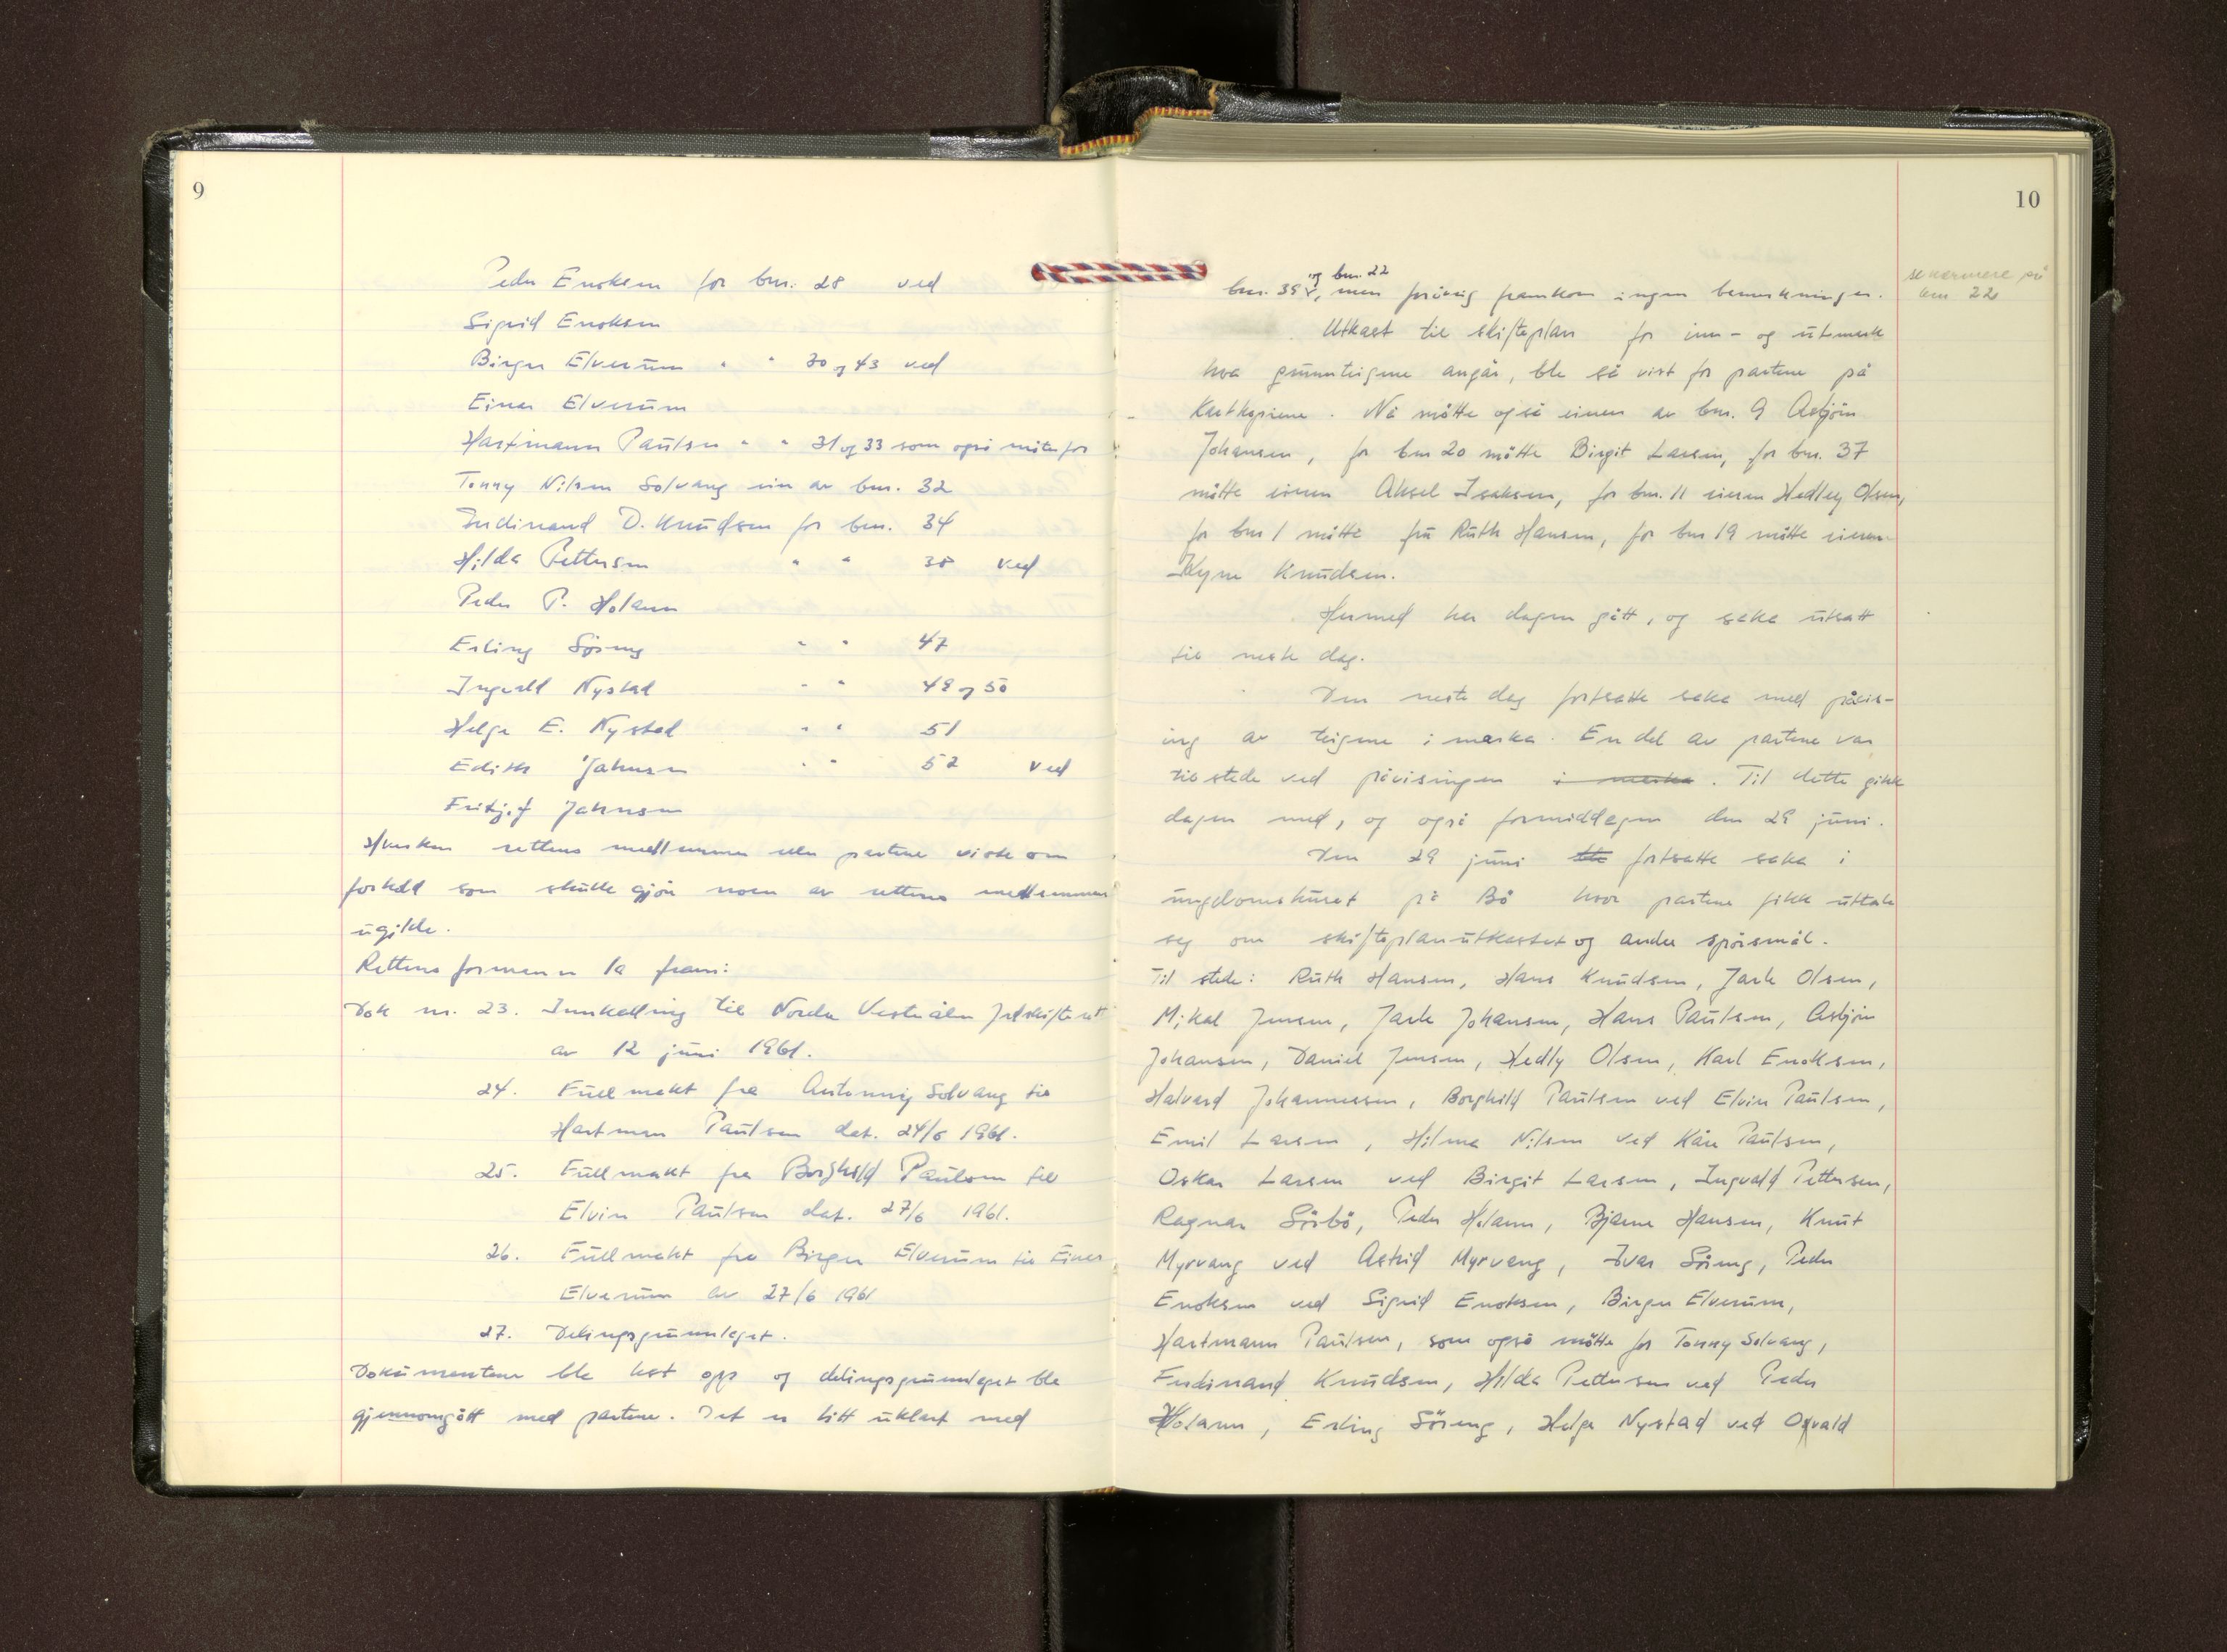 9
Peder Enoksen for bnr. 28 ved
Sigrid Enoksen
Birger Elverum " " 30 og 43 ved
Einar Elverum
Hartmann Paulsen " " 31 og 33 som også møter for
Tonny Nilsen Solvang eier av bnr. 32
Ferdinand D. Knudsen for bnr. 34
Hilda Pettersen " " 38 ved
Peder P. Holann
Erling Söreng " " 47
Ingvald Nystad " " 49 og 50
Helge E. Nystad " " 51
Edith Jahnsen " " 52 ved
Fritjof Jahnsen
Hverken rettens medlemmer eller partene viste om
forhold som skulle gjöre noen av rettens medlemmer
ugilde.
Rettens formann la fram:
Dok nr. 23. Innkalling til Nordre Vesterålen jordskifterett
av 12 juni 1961.
24. Fullmakt fra Antonny Solvang til
Hartman Paulsen dat. 24/6 1961.
25. Fullmakt fra Borghild Paulsen til
Elvin Paulsen dat. 27/6 1961.
26. Fullmakt fra Birger Elverum til Einar
Elverum av 27/6 1961
27. Delingsgrunnlaget.
Dokumentene ble lest opp og delingsgrunnlaget ble
gjennomgått med partene. Det er litt uklart med
10
og bnr. 22
bnr. 35, men forövrig framkom ingen bemerkninger.
se nærmere på
bnr 22
Utkast til skifteplan for inn- og utmark
hva grunnteigene angår, ble så vist for partene på
kartkopiene. Nå mötte også eieren av bnr. 9 Asbjörn
Johansen, for bnr 20 mötte Birgit Larsen, for bnr. 37
mötte eieren Aksel Isaksen, for bnr. 11 eieren Hedley Olsen,
for bnr 1 mötte fru Ruth Hansen, for bnr 19 mötte eieren
Knudsen.
Hermed har dagen gått, og saka utsatt
til neste dag.
Den neste dag fortsatte saka med påvis-
ing av teigene i marka. En del av partene var
til stede ved påvisingen i marka. Til dette gikk
dagen med, og også formiddagen den 29 juni.
Den 29 juni ble fortsatte saka i
ungdomshuset på Bö hvor partene fikk uttale
seg om skifteplanutkastet og andre spörsmål.
Til stede: Ruth Hansen, Hans Knudsen, Jarle Olsen,
Mikal Jensen, Jarle Johansen, Hans Paulsen, Asbjörn
Johansen, Daniel Jensen, Hedly Olsen, Karl Enoksen,
Halvard Johannessen, Borghild Paulsen ved Elvin Paulsen,
Emil Larsen, Hilma Nilsen ved Kåre Paulsen,
Oskar Larsen ved Birgit Larsen, Ingvald Pettersen,
Ragnar Sörbö, Peder Holann, Bjarne Hansen, Knut
Myrvang ved Astrid Myrvang, Ivar Söreng, Peder
Enoksen ved Sigrid Enoksen, Birger Elverum,
Hartmann Paulsen, som også mötte for Tonny Solvang,
Ferdinand Knudsen, Hilda Pettersen ved Peder
Holann, Erling Söreng, Helge Nystad ved Osvald